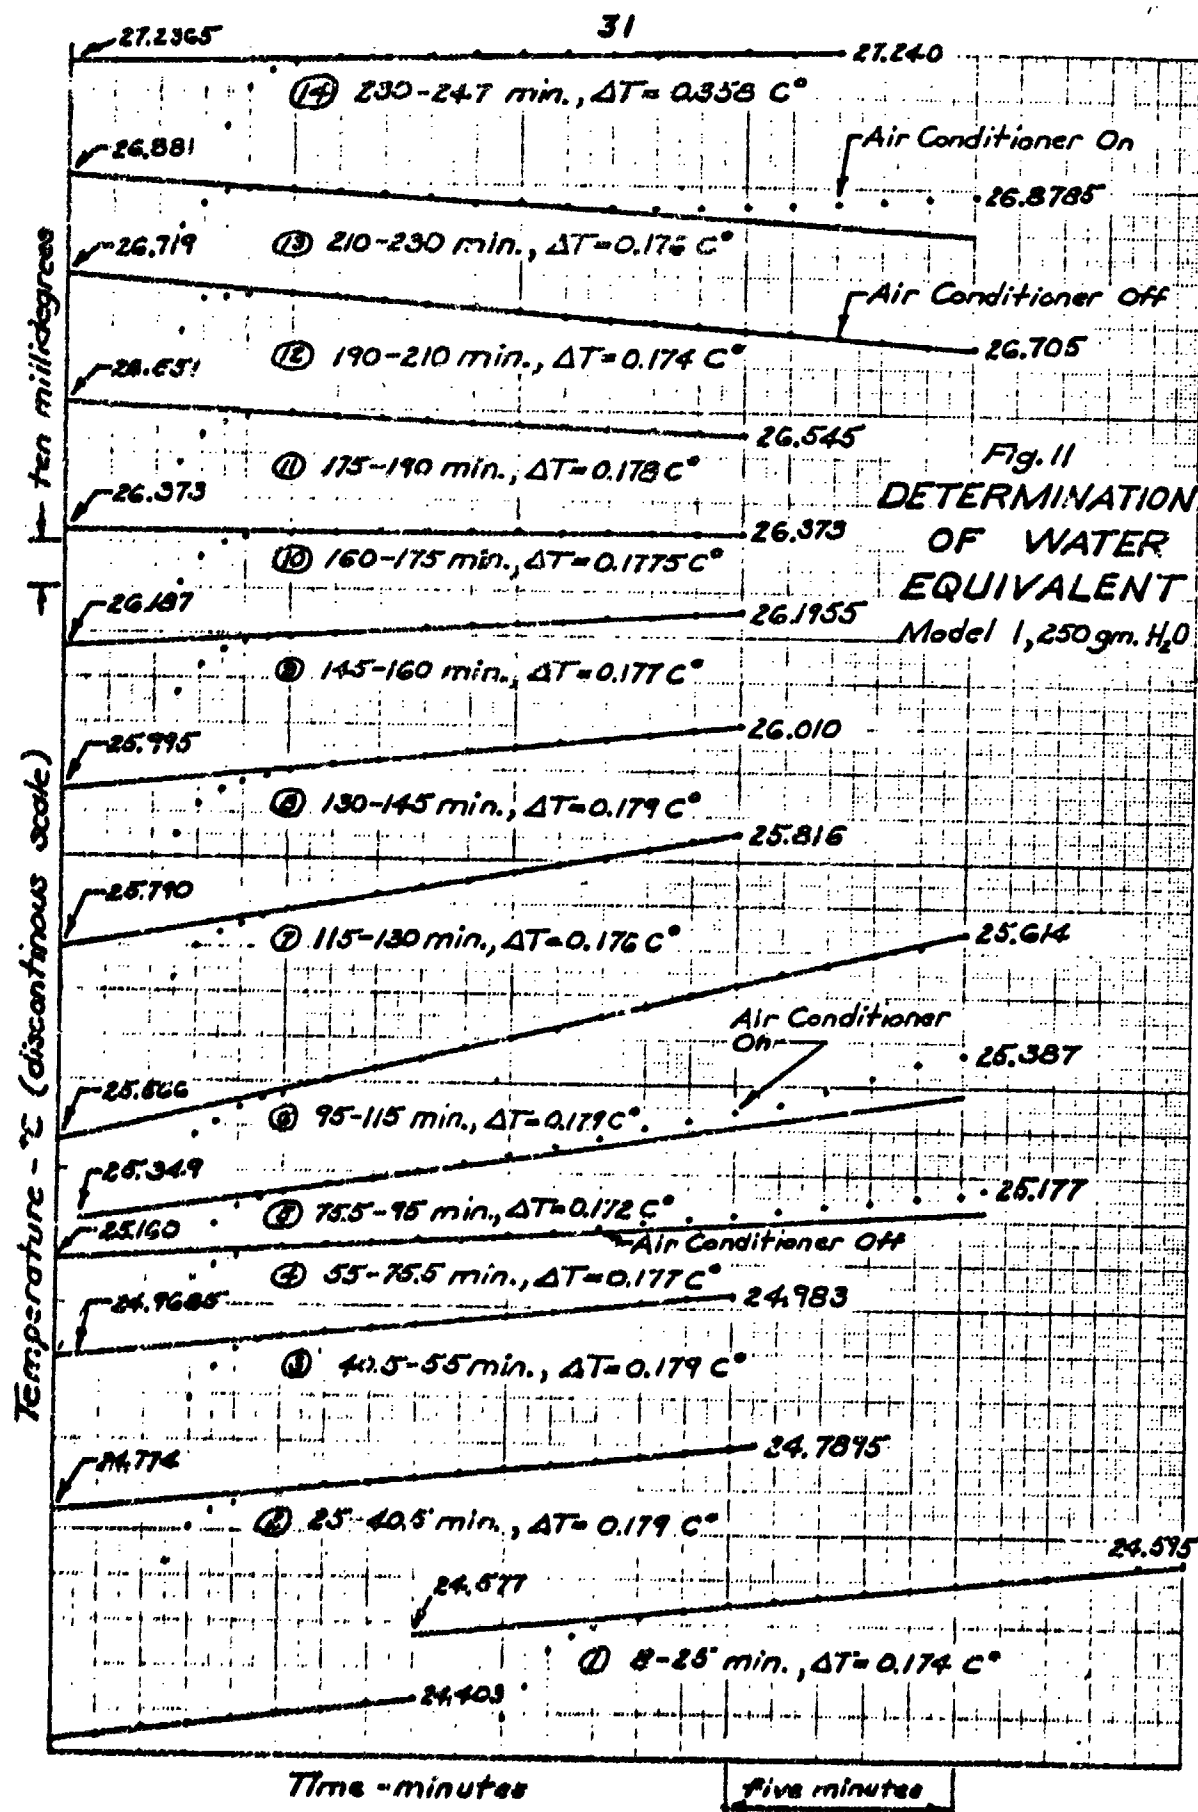 31
27.2365
27.240
⑭ 230-247 min., ΔT= 0.358 C°
26.881
Air Conditioner On
26.8785
26.719
⑬ 210-230 min., ΔT=0.176 C°
Air Conditioner Off
26.705
⑫ 190-210 min., ΔT=0.174 C°
26.545
⑪ 175-190 min., ΔT=0.178 C°
Fig. 11
DETERMINATION
OF WATER
EQUIVALENT
Model 1, 250 gm. H₂O
26.373
26.373
⑩ 160-175 min., ΔT=0.1775 C°
26.187
26.1955
⑨ 145-160 min., ΔT=0.177 C°
25.995
26.010
⑧ 130-145 min., ΔT=0.179 C°
25.816
25.790
⑦ 115-130 min., ΔT=0.176 C°
25.614
Air Conditioner
On
25.387
25.566
⑥ 95-115 min., ΔT=0.179 C°
25.349
25.177
⑤ 75.5-95 min., ΔT=0.172 C°
25.160
Air Conditioner Off
④ 55-75.5 min., ΔT=0.177 C°
24.9685
24.983
③ 40.5-55 min., ΔT=0.179 C°
24.774
24.7895
② 25-40.5 min., ΔT= 0.179 C°
24.595
24.577
① 8-25 min., ΔT=0.174 C°
24.403
Time - minutes
five minutes
Temperature - °C (discontinous scale)
ten millidegrees